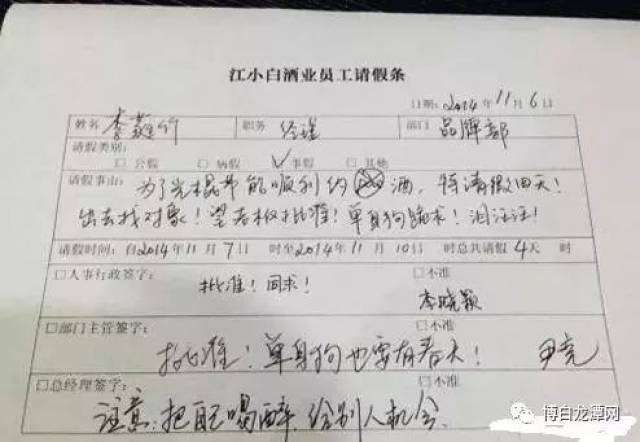 江小白酒业员工请假条
日期: 2014年11月6日
姓名 李 竹 职务 经理 部门 品牌部
请假类别:
□公假 □病假 ✓事假 □其他
请假事由: 为了光棍节能顺利约酒,特请假四天!
出去找对象!望老板批准!单身狗跪求!泪汪汪!
请假时间: 自2014年11月7日 时至2014年11月10日 时总共请假4天 时
□人事行政签字: □不准
批准!同求!
李晓颖
□部门主管签字: □不准
批准!单身狗也要有春天! 尹亮
□总经理签字: □不准
注意:把自己喝醉,给别人机会
博白龙潭网